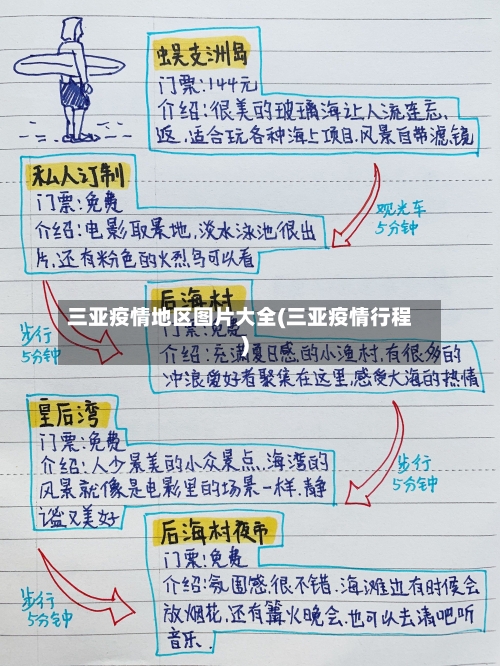 蜈支洲岛
门票:144元
介绍:很美的玻璃海让人流连忘
返,适合玩各种海上项目,风景自带滤镜
私人订制
门票:免费
介绍:电影取景地,淡水泳池很出
片,还有粉色的火烈鸟可以看
观光车
5分钟
后海村
三亚疫情地区图片大全(三亚疫情行程
)
门票:免费
步行
5分钟
介绍:充满夏日感的小渔村,有很多的
冲浪爱好者聚集在这里,感受大海的热情
皇后湾
门票:免费
介绍:人少景美的小众景点,海湾的
风景就像是电影里的场景一样,静
谧又美好
步行
5分钟
后海村夜市
门票:免费
介绍:氛围感很不错.海滩边有时候会
放烟花,还有篝火晚会.也可以去清吧听
音乐.
步行
5分钟